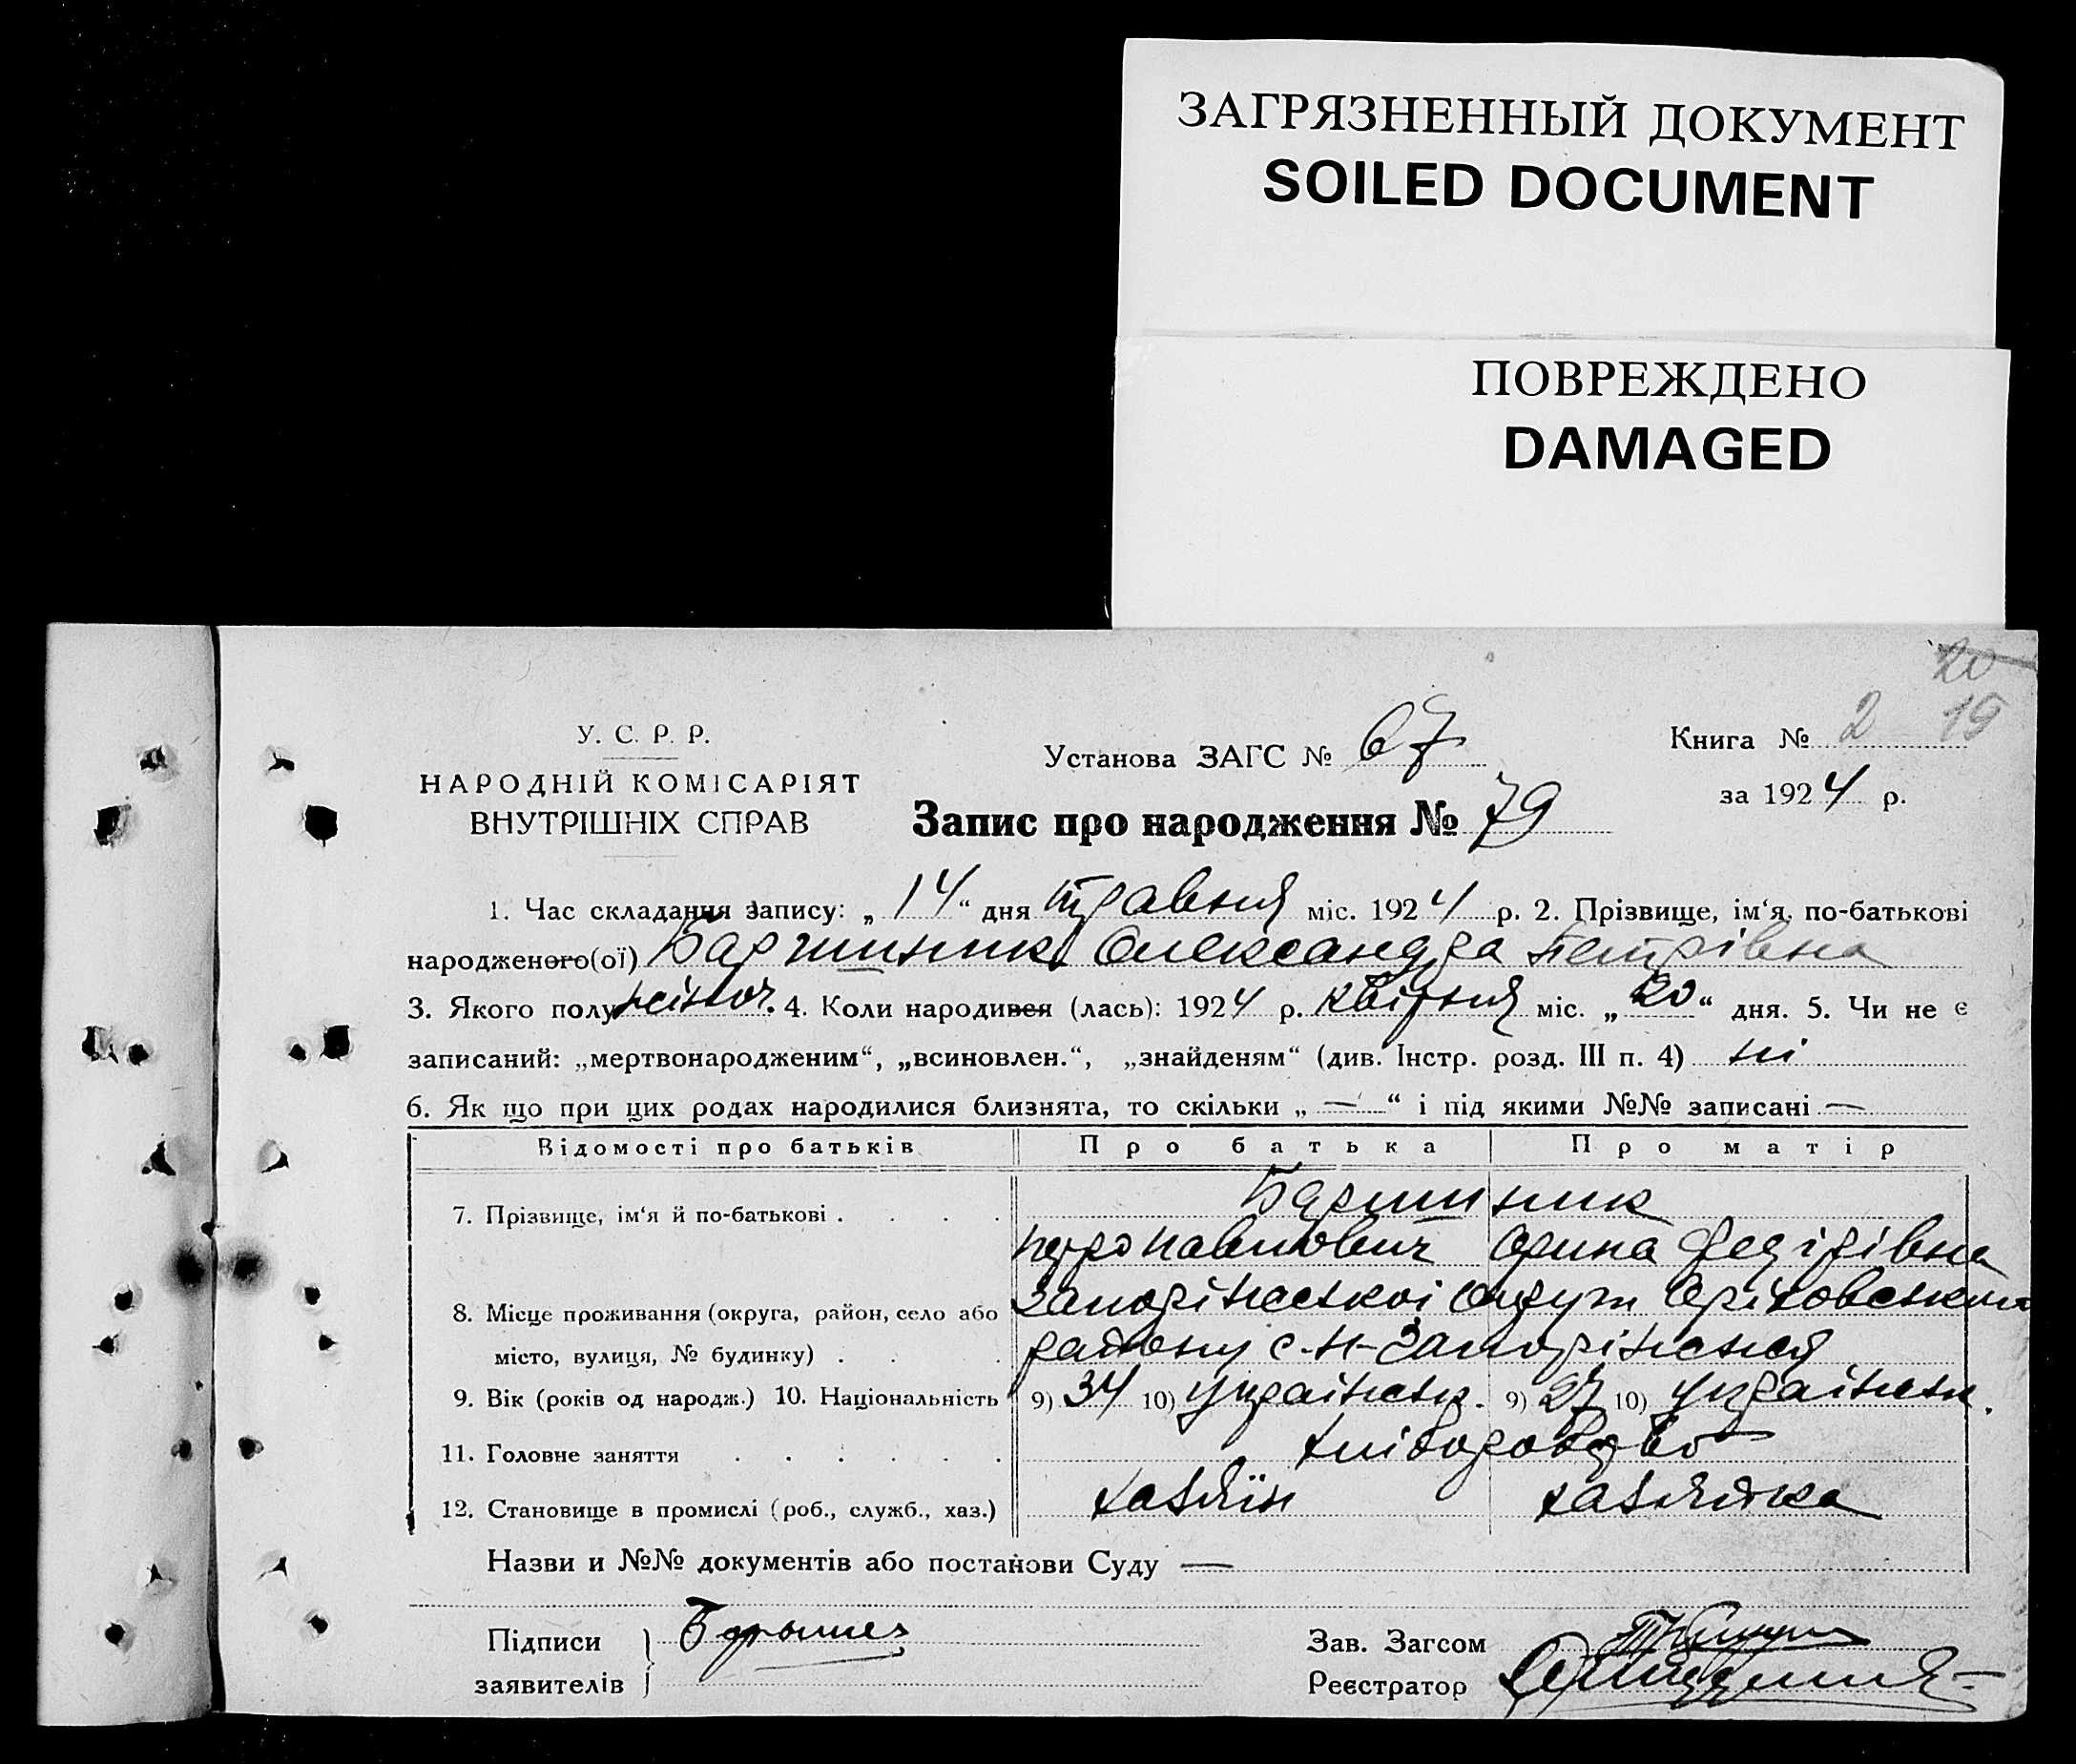 ЗАГРЯЗНЕННЫЙ ДОКУМЕНТ
SOILED DOCUMENT
ПОВРЕЖДЕНО
DAMAGED
20
У. С. Р. Р.
НАРОДНІЙ КОМІСАРІЯТ
ВНУТРІШНІХ СПРАВ
Установа ЗАГС № 67
Запис про народження № 79
Книга № 2 19
за 1924 р.
1. Час складання запису: „ 14 “ дня травня міс. 1924 р. 2. Прізвище, ім‘я, по-батькові
народженого(ої) Олександра Петрівна
3. Якого полу жіноч. 4. Коли народився (лась): 1924 р. квітня міс. „ 20 “ дня. 5. Чи не є
записаний: „мертвонародженим“, „всиновлен.“, „знайденям“ (див. Інстр. розд. III п. 4) ні
6. Як що при цих родах народилися близнята, то скільки „ — “ і під якими №№ записані —
Відомості про батьків Про батька Про матір
7. Прізвище, ім‘я й по-батькові . . . . Баршиник
Петро Павлович Орина Федірівна
8. Місце проживання (округа, район, село або Запоріжської округи Оріховського
місто, вулиця, № будинку) . . . району с. Н-Запоріжжя
9. Вік (років од народж.) 10. Національність 9) 34 10) українськ. 9) 27 10) українськ.
11. Головне заняття . . . . . . хліборобство
12. Становище в промислі (роб., служб., хаз.) хазяїн хазяйка
Назви и №№ документів або постанови Суду —
Підписи
заявителів
Зав. Загсом
Реєстратор